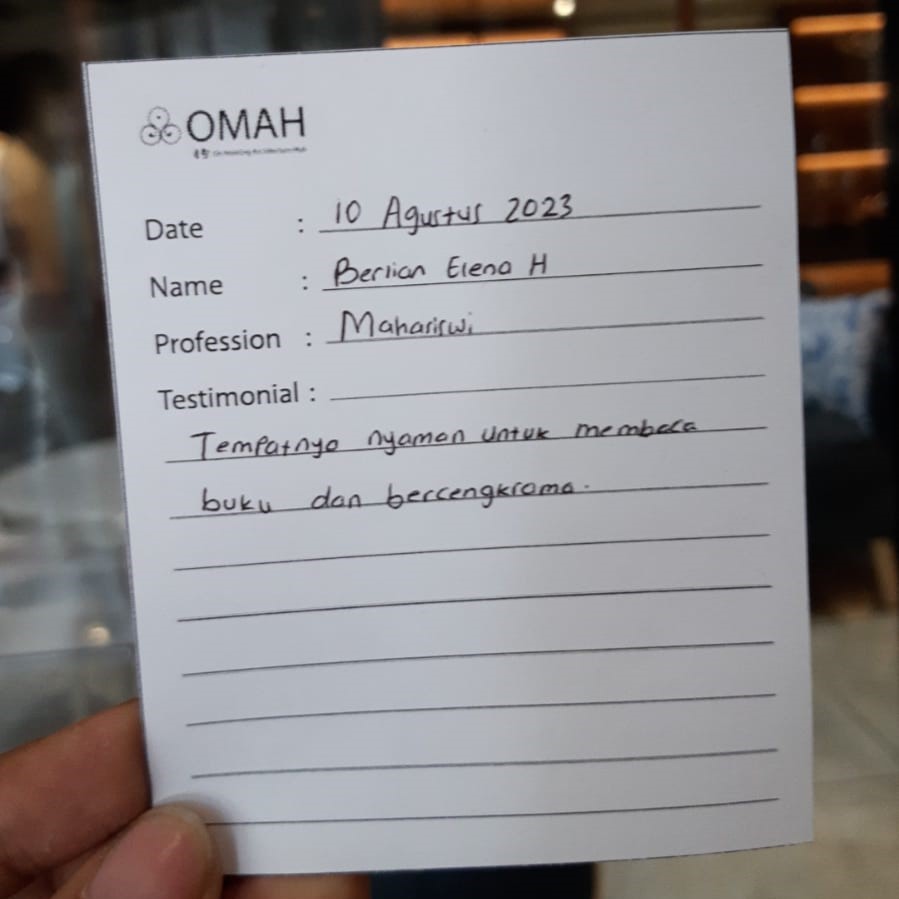 OMAH
Date : 10 Agustus 2023
Name : Berlian Elena H
Profession : Mahasiswi
Testimonial :
Tempatnya nyaman untuk membaca
buku dan bercengkrama.